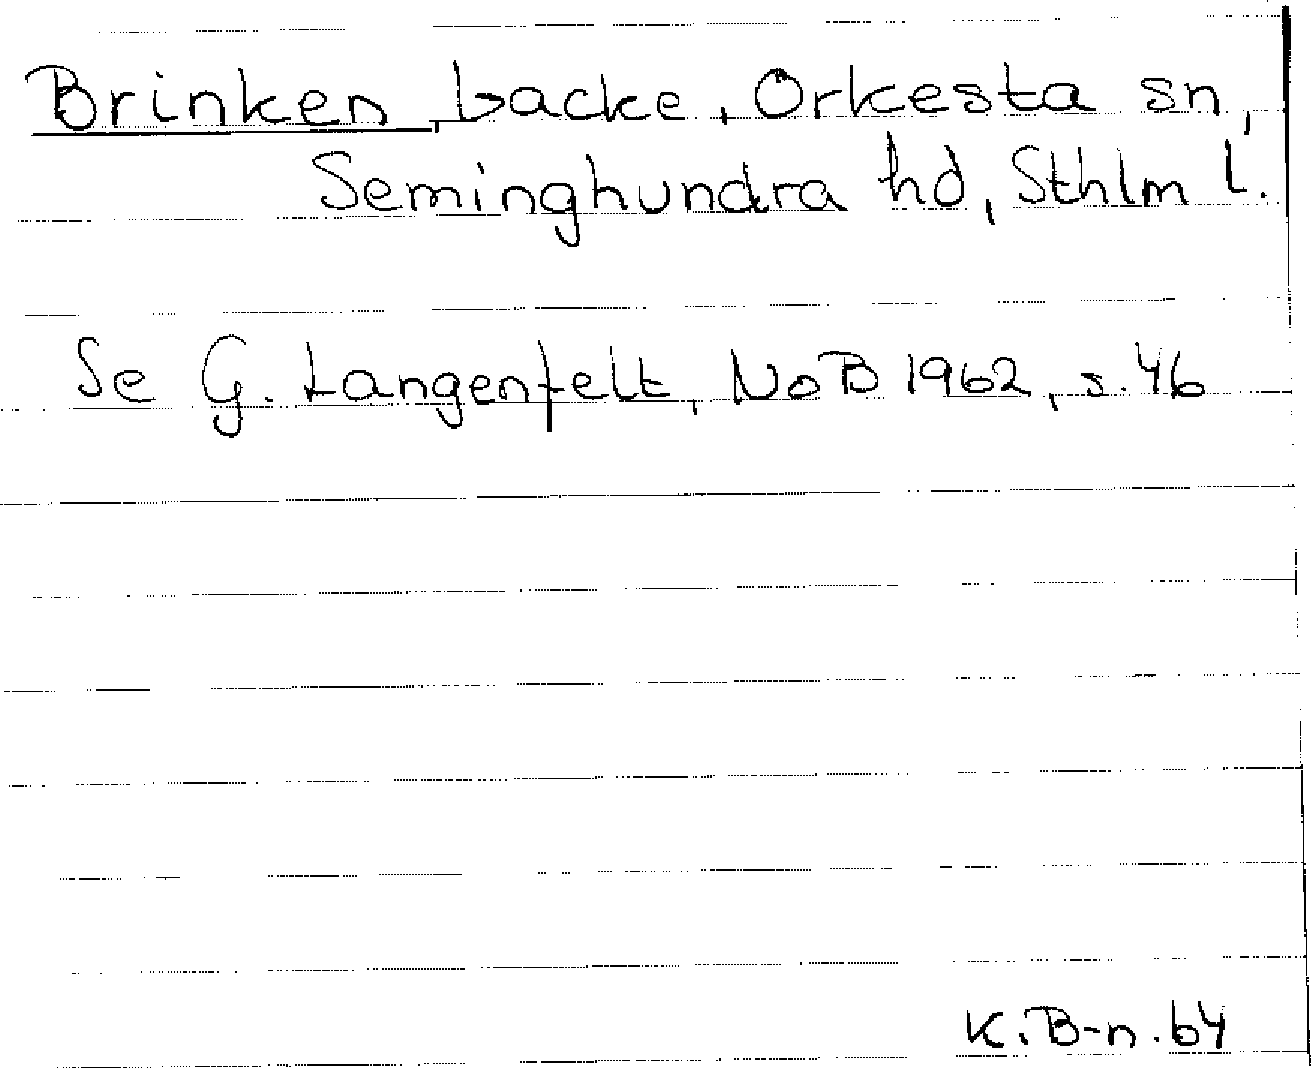 Brinken, backe, Orkesta sn,
Seminghundra hd, Sthlm l.
Se G. Langenfelt, NoB 1962, s. 46
K.B-n. 64